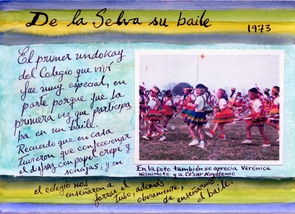 De la Selva su baile
1973
El primer undokay
del Colegio que viví
fue muy especial, en
parte porque fue la
primera vez que participa
ba en un baile.
Recuerdo que en casa
tuvieron que confeccionar
el disfraz con papel crepe y
sonajas, y en
el colegio nos
enseñaron a
forrar el
tubo, además
obviamente,
de enseñarnos
el baile.
En la foto también se aprecia Verónica
y a César